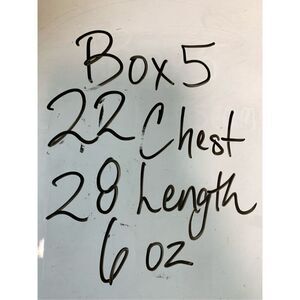 Box 5
22 Chest
28 Length
6 oz